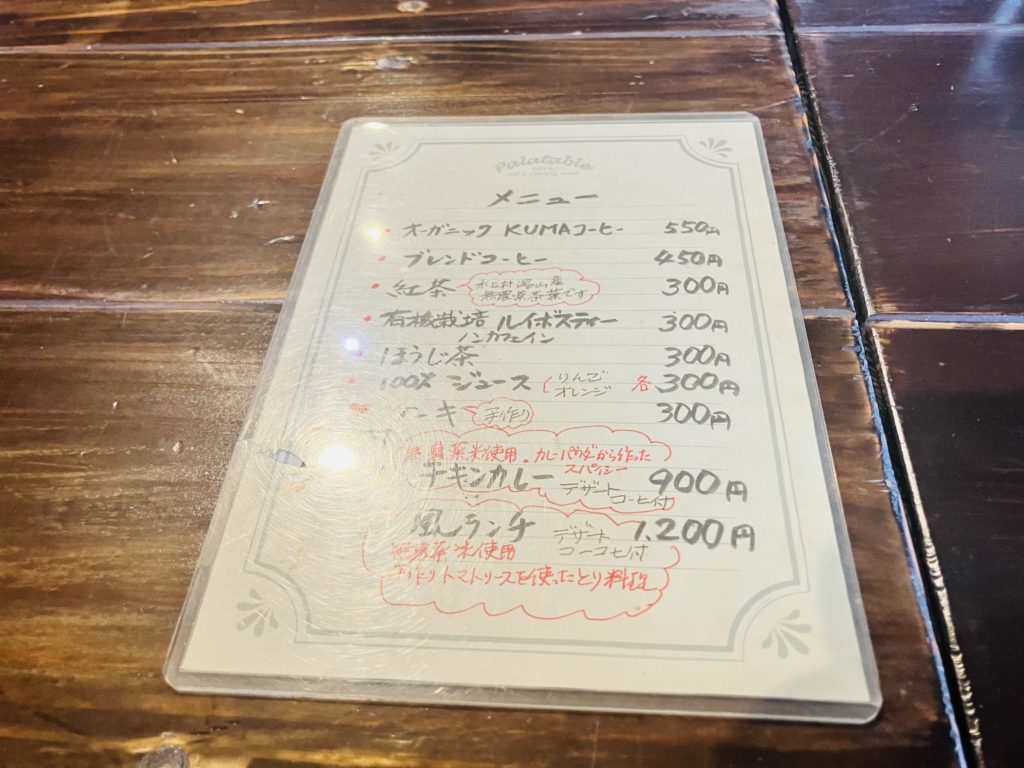 Palatable
メニュー
オーガニック KUMAコーヒー 550円
ブレンドコーヒー 450円
紅茶 水上村湯山産 300円
無農薬茶葉です
有機栽培 ルイボスティー 300円
ノンカフェイン
ほうじ茶 300円
100% ジュース (りんご 各300円
オレンジ
ーキ 手作り 300円
無農薬米使用・カレーパウダーから作った
スパイシー
チキンカレー デザート 900円
コーヒー付
風ランチ デザート 1,200円
無農薬米使用 コーヒー付
手作りトマトソースを使ったとり料理